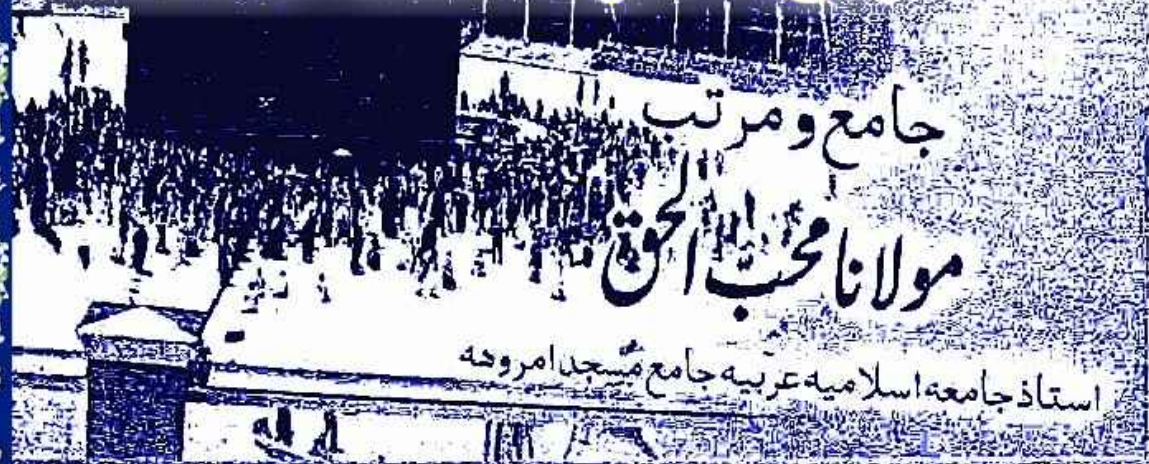 جامع و مرتب
مولانا محبّ الحق
استاذ جامعہ اسلامیہ عربیہ جامع مسجد امروہہ